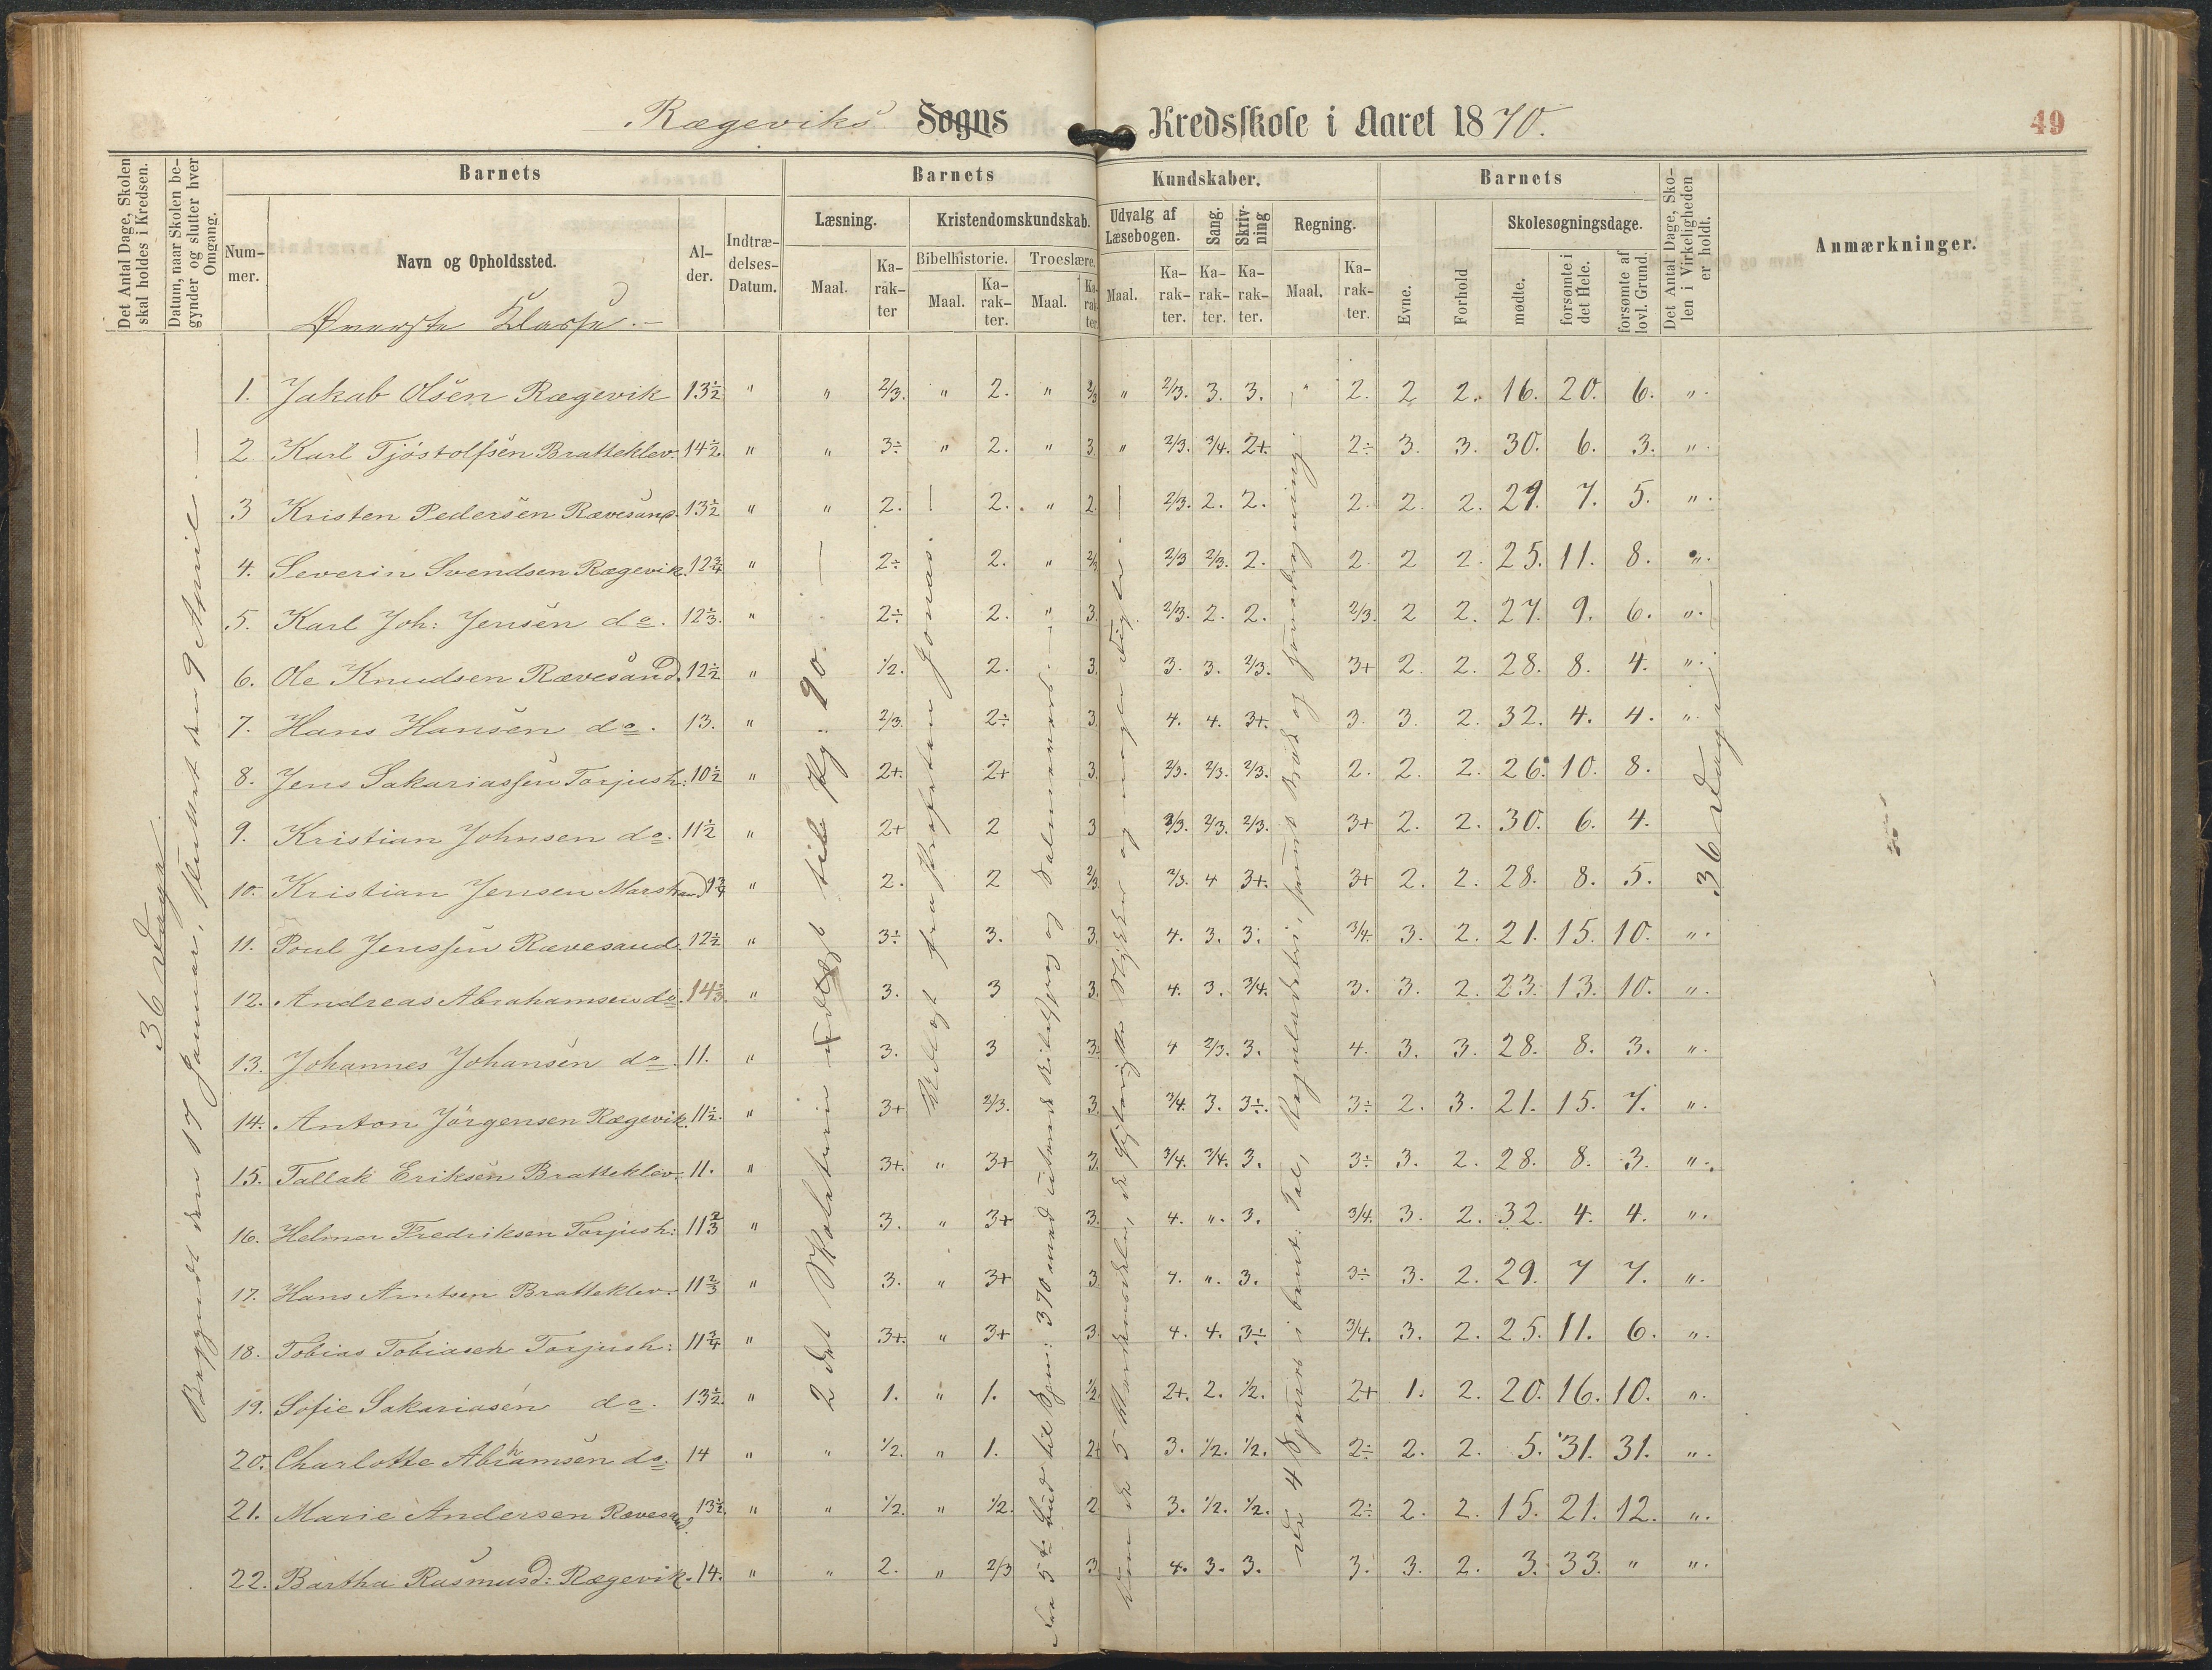 Rægeviks Sogns Kredsskole i Aaret 1870.
49
Det Antal Dage, Skolen skal holdes i Kredsen.
Datum, naar Skolen begynder og slutter hver Omgang.
Barnets
Nummer.
Navn og Opholdssted.
Alder.
Indtrædelses-Datum.
Barnets Kundskaber.
Læsning.
Maal.
Karakter
Kristendomskundskab.
Bibelhistorie.
Maal.
Karakter.
Troeslære.
Maal.
Karakter.
Udvalg af Læsebogen.
Maal.
Karakter.
Sang.
Karakter.
Skrivning
Karakter.
Regning.
Maal.
Karakter.
Barnets
Evne.
Forhold
Skolesøgningsdage.
mødte.
forsømte i det Hele.
forsømte af lovl. Grund.
Det Antal Dage, Skolen i Virkeligheden er holdt.
Anmærkninger.
Øverste Klasse.-
36 Dage.
Begyndt den 17 Januar, sluttet den 9 April.
1. Jakob Olsen Rægevik 13½ " " 2/3. " 2. " 2/3 " 2/3. 3. 3. " 2. 2 2. 16. 20. 6. ".
2 Karl Tjöstolfsen Bratteklev. 14½ " " 3÷ " 2. " 3. " 2/3. 3/4. 2+. 2÷ 3. 3. 30. 6. 3. ".
3 Kristen Pedersen Rævesand. 13½ " " 2. 2. " 2. 2/3. 2. 2. 2. 2. 2. 29. 7. 5. ".
4. Severin Svendsen Rægevik. 12¾ " 2÷ 2. " 2/3 2/3 2/3. 2. 2. 2 2. 25. 11. 8. ".
5. Karl Joh: Jensen do. " 2÷ 2. " 3. 2/3. 2. 2. 2/3. 2 2. 27. 9. 6. ".
6. Ole Knudsen Rævesand. 12½ " 1/2. 2. 3. 3. 3. 2/3. 3+ 2. 2. 28. 8. 4. ".
7. Hans Hansen do. 13. " 2/3. 2÷ 3. 4. 4. 3+. 3. 3. 2. 32. 4. 4. ".
8. Jens Sakariassen Torjush: 10½ " 2+. 2+ 3. 2/3. 2/3. 2/3. 2. 2. 2. 26. 10. 8.
9. Kristian Johnsen do. 11½ " 2+ 2 3 2/3. 2/3. 2/3. 3+ 2. 2. 30. 6. 4.
10. Kristian Jensen " 2. 2 2/3. 2/3. 4 3+. 3+ 2. 2. 28. 8. 5.
11. Poul Jenssen Rævesand. 12½ " 3÷ 3. 3. 4. 3. 3. 3/4. 3. 2. 21. 15. 10. ".
12. Andreas Abrahamsen do. " 3. 3 3. 4. 3. 3/4. 3. 3. 2. 23. 13. 10. ".
13. Johannes Johansen do. 11. " 3. 3 3÷ 4 2/3. 3. 4. 3. 3. 28. 8. 3. ".
14. Anton Jörgensen Rægevik. 11½. " 3+ 2/3. 3. 3/4. 3. 3÷. 3÷ 2. 3. 21. 15. 7. ".
15. Tallak Eriksen Bratteklev. 11. " 3+. " 3+ 3. 3/4. 3/4. 3. 3÷ 3. 2. 28. 8. 3. ".
16. Helmer Fredriksen Torjush: 11⅔ " 3. " 3+ 3. 4. ". 3. 3/4. 3. 2. 32. 4. 4. ".
17. Hans Arntsen Bratteklev. 11⅔ " 3. " 3+ 3 4. ". 3. 3÷ 3. 2. 29. 7 7. ".
18. Tobias Tobiasen Torjush: 11¾ " 3+. " 3+ 3. 4. 4. 3÷ 3/4. 3. 2. 25. 11. 6. ".
19. Sofie Sakariasen do. 13½. " 1. " 1. 1/2. 2+. 2. 1/2. 2+ 1. 2. 20. 16. 10. ".
20. Charlotte Abrahamsen do. 14 " " 1/2. " 1. 2+ 3. 1/2. 1/2. 2÷ 2. 2. 5. 31. 31. ".
21. Marie Andersen Rævesand. 13½. " " 1/2. " 1/2. 2 3. 1/2. 1/2. 2÷ 2. 2. 15. 21. 12. ".
22. Bartha Rasmusd: Rægevik. 14. " " 2. " 2/3 3. 4. 3. 3. 3. 3. 2. 3. 33. " ".
2det Skoletrin til Pg: 90.
fra Profeten Jonas.
36 Dage